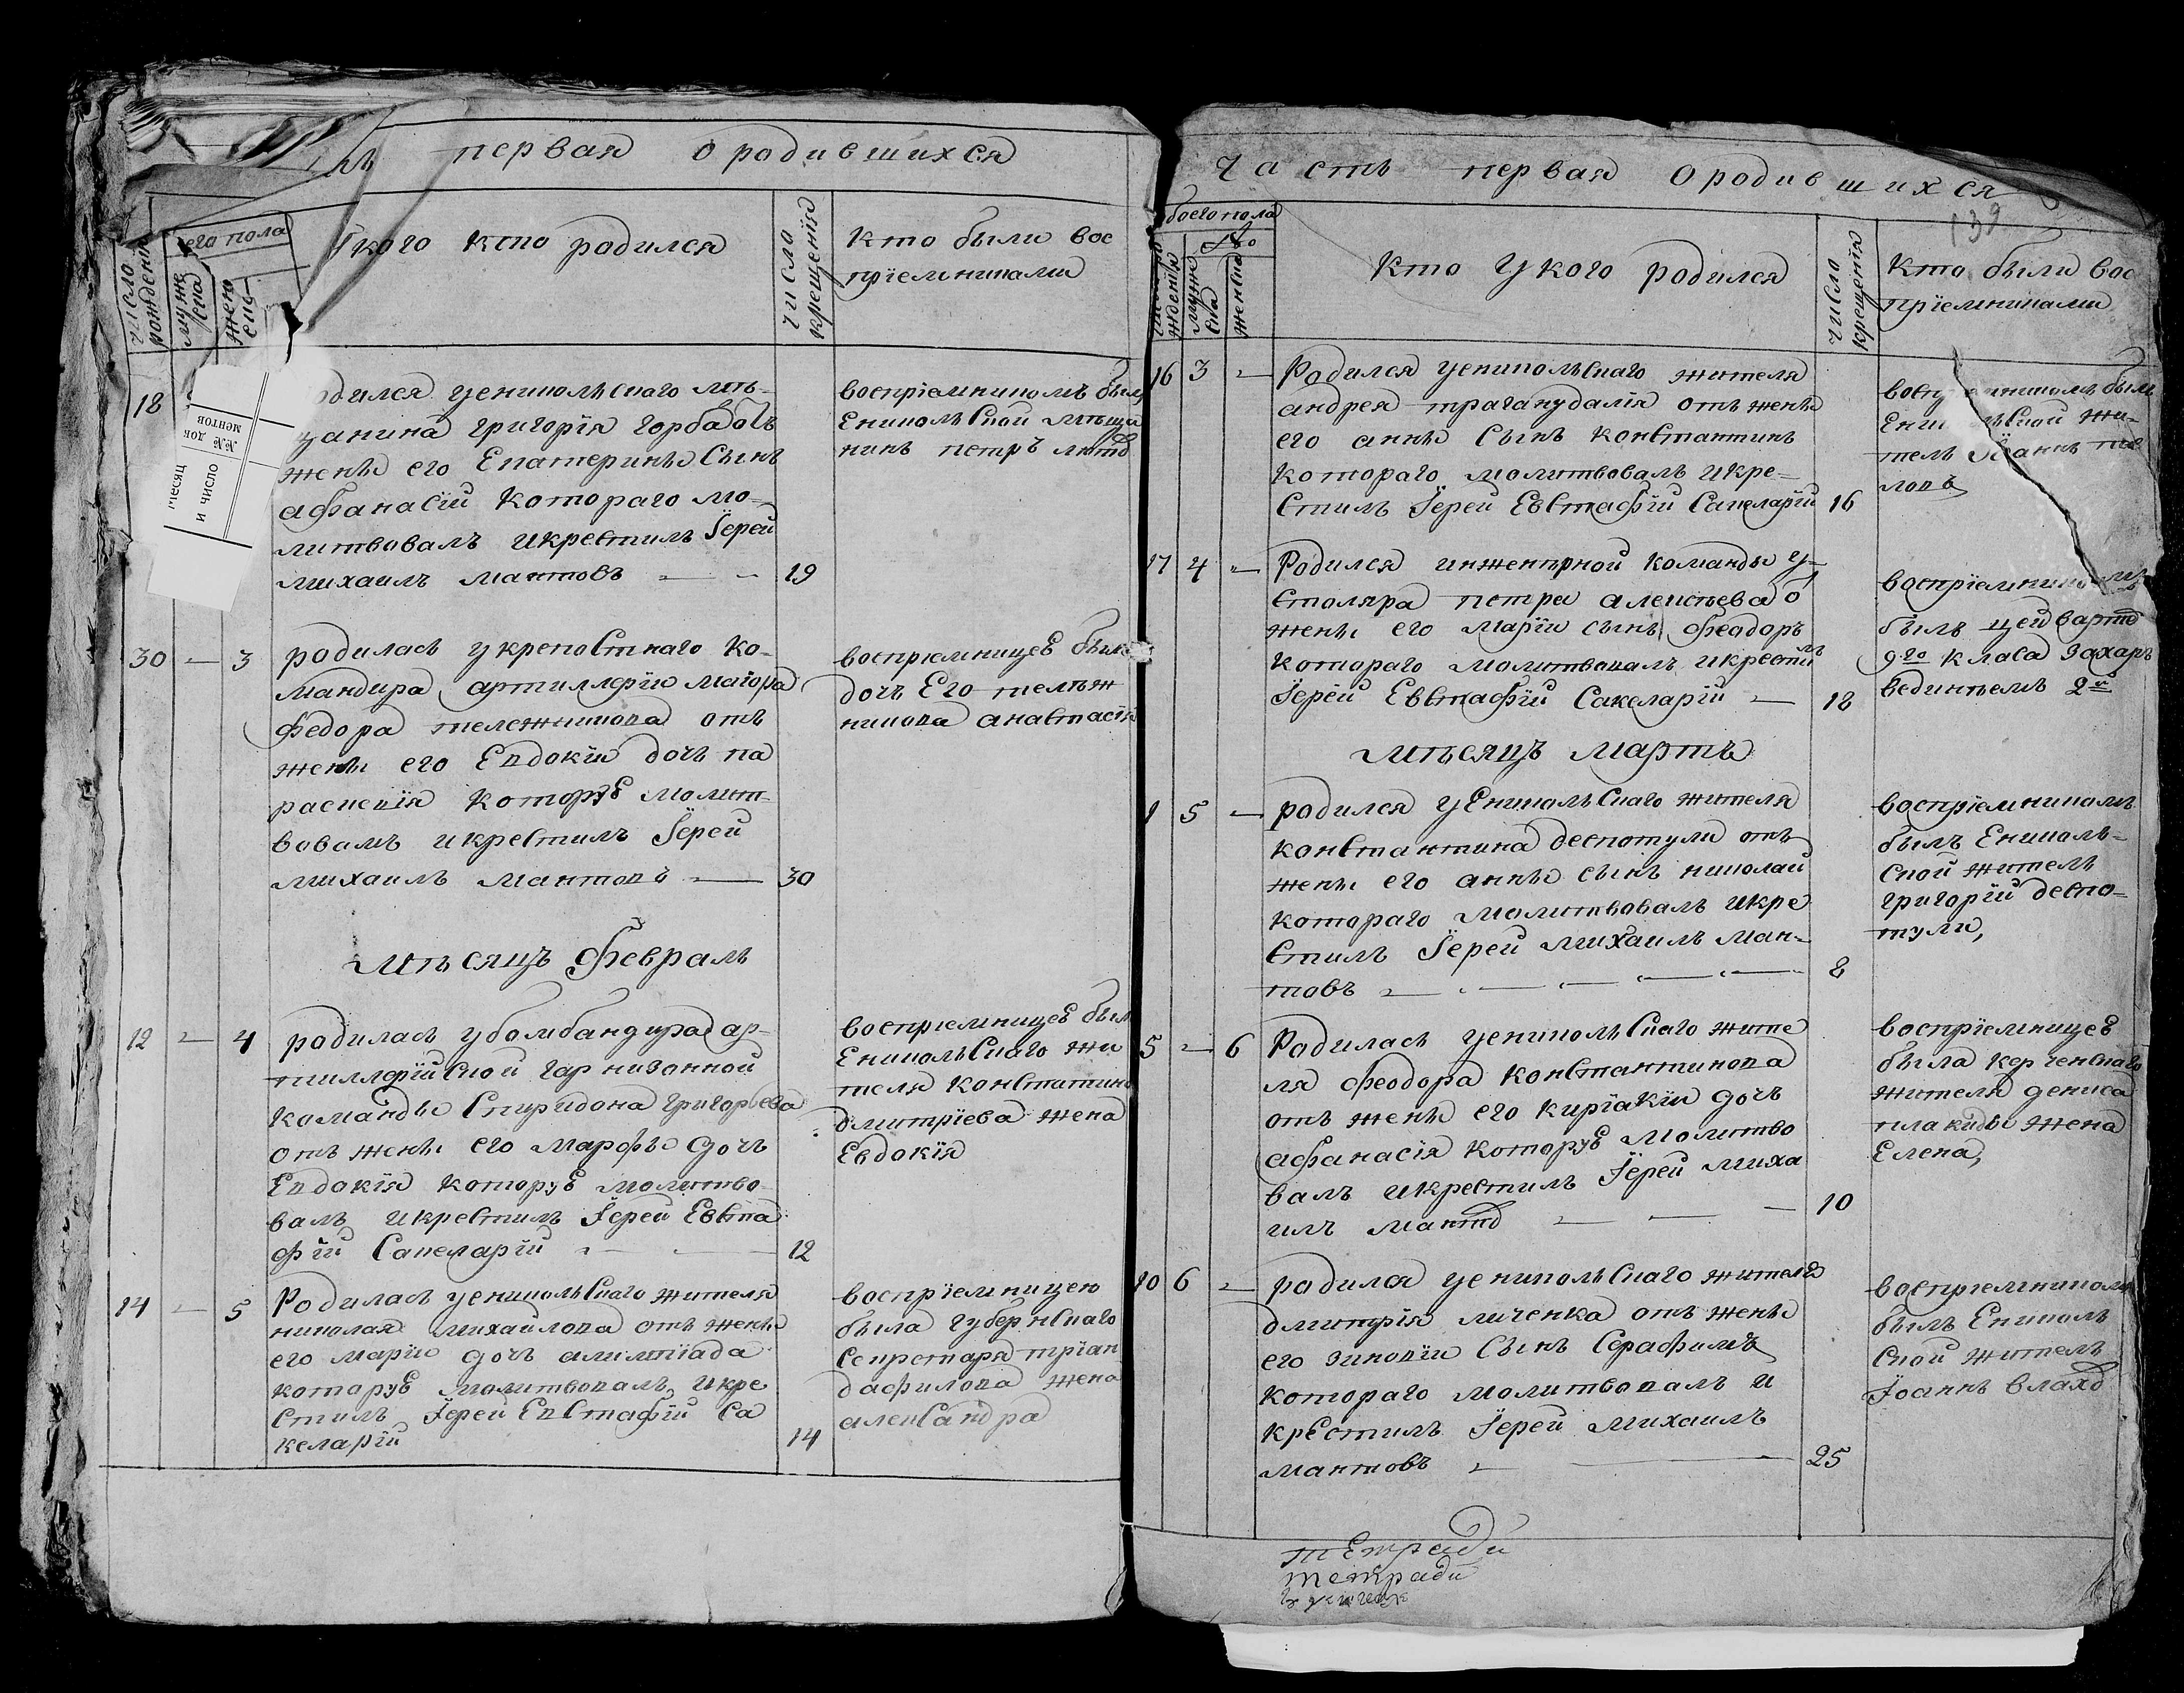 первая о родившихся
число рождения
его пола
муже
ска
жено
ска
У кого кто родился
число крещенїя
кто были вос
прїемниками
18
родился уеникольскаго мѣ-
щанина григорїя горбаботъ
жены его Екатерины Сынъ
афанасїй котораго мо-
литвовалъ и крестилъ Їерей
михаилъ мантовъ
19
воспрїемникомъ былъ
Еникольской мѣща
нинъ петръ
№№ док
ментов
и число
30 3
родилась у крепостнаго ко-
мандира артиллерїи маїора
федора тележникова отъ
жены его Евдокїи дочь па
раскевїя которую молит-
вовалъ и крестилъ Їерей
михаилъ мантовъ
30
воспрїемницею была
дочь Его тележ
никова анастасїя
мѣсяцъ февраль
12 4
родилась у бомбандира ар-
тиллерїйской гарнизонной
команды Спиридона григорьева
отъ жены его марфы дочь
Евдокїя которую молитво-
валъ и крестилъ Їерей Евста
фїй Сакеларїй
12
воспрїемницею была
Еникольскаго жи
теля константина
дмитрїева жена
Евдокїя
14 5
Родилась уеникольскаго жителя
николая михайлова отъ жены
его марїи дочь алимпїада
которую молитвовалъ и кре
стилъ Їерей Евстафїй Са
келарїй
14
воспрїемницею
была губернскаго
секретаря трїан
дафилова жена
александра
часть первая о родившихся
139
коего пола
муже
ска
женска
Кто У кого родился
число
крещенїя
Кто были вос
прїемниками
16 3
Родился уеникольскаго жителя
андрея трагакудалїя отъ жены
его анны Сынъ константинъ
котораго молитвовалъ и кре-
стилъ Їерей Евстафїй Сакеларїй
16
былъ
жи-
тель Їоаннъ
17 4
Родился инженерной команды у-
столяра петра алексѣева о
жены его марїи сынъ феодоръ
котораго молитвовалъ и крестилъ
Їерей Евстафїй Сакеларїй
18
воспрїемникомъ
былъ цейхвартеръ
9го класа Захаръ
мѣсяцъ мартъ
1 5
родился уЕникольскаго жителя
константина деспотули отъ
жены его анны сынъ николай
котораго молитвовалъ и кре
стилъ Їерей михаилъ ман-
товъ
8
воспрїемникомъ
былъ Ениколь-
ской житель
григорїй деспо-
тули,
5 6
Родилась уеникольскаго жите
ля феодора константинова
отъ жены его кирїакїи дочь
афанасїя которую молитво
валъ и крестилъ Їерей миха
илъ мантовъ
10
воспрїемницею
была керченскаго
жителя дениса
плакиды жена
Елена,
10 6
родился уеникольскаго жителя
дмитрїя личенка отъ жены
его зиновїи Сынъ Серафимъ
котораго молитвовалъ и
крестилъ Їерей михаилъ
мантовъ
25
воспрїемникомъ
былъ Ениколь
ской житель
Їоаннъ влаховъ
тетради
тетради